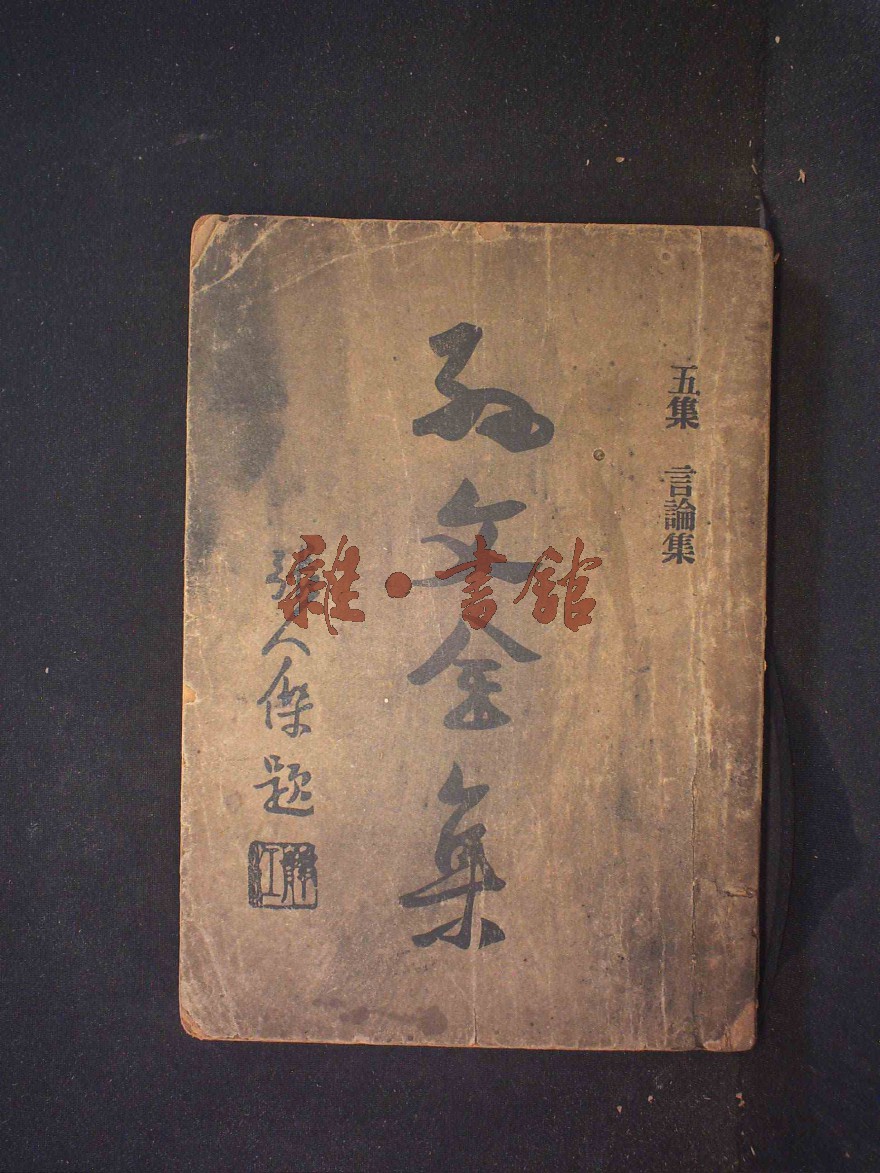 五集 言論集
孫文全集
張人傑題
雜·書館